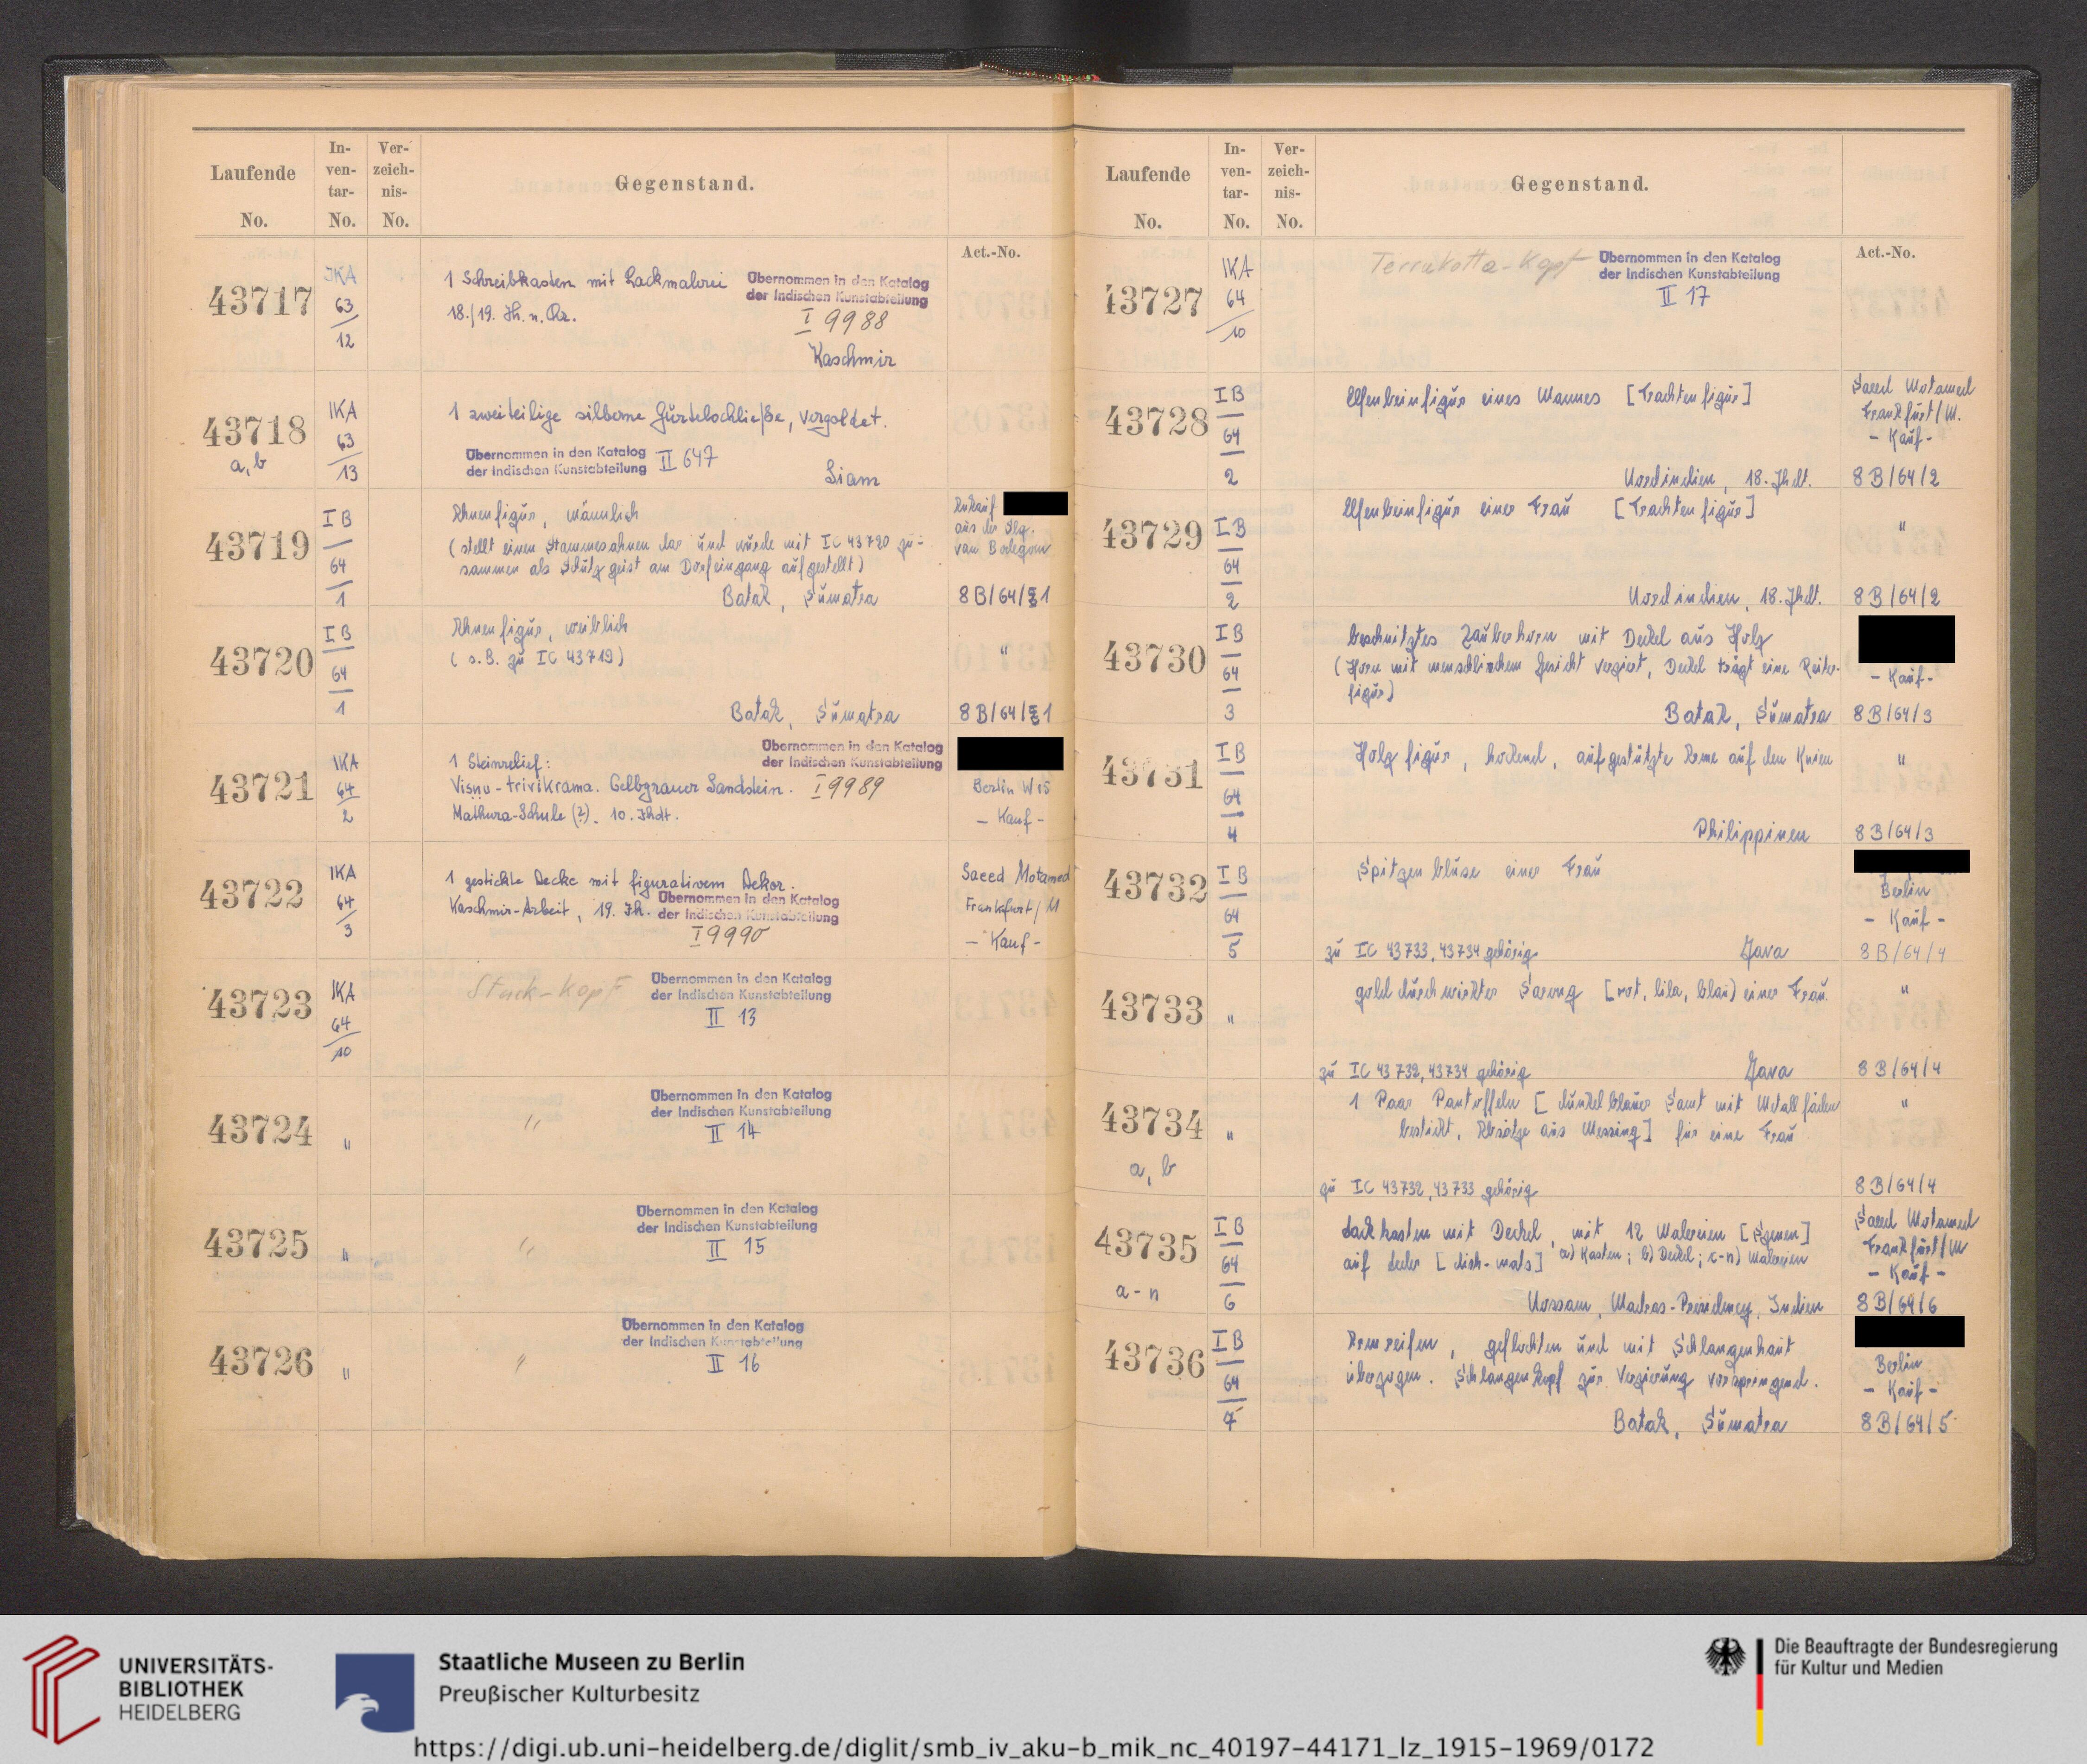 Laufende
No.
In-
ven-
tar-
No.
Ver-
zeich-
nis-
No.
Gegenstand.
Act.-No.
43717
IKA
63
12
1 Schreibkasten mit Lackmalerei
18./19. Jh. n. Chr.
Übernommen in den Katalog
der Indischen Kunstabteilung
I 9988
Kaschmir
43718
a, b
IKA
63
13
1 zweiteilige silberne Gürtelschließe, vergoldet.
Übernommen in den Katalog
der Indischen Kunstabteilung
II 647
Siam
43719
I B
64
1
Ahnenfigur, männlich
(stellt einen Stammesahnen dar und wurde mit IC 43720 zu-
sammen als Schutzgeist am Dorfeingang aufgestellt)
Batak, Sumatra
Ankauf
aus der Slg.
8 B/64/1
43720
I B
64
1
Ahnenfigur, weiblich
(s. B. zu IC 43719)
Batak, Sumatra
"
8 B/64/1
43721
IKA
64
2
1 Steinrelief:
Viṣṇu-trivikrama. Gelbgrauer Sandstein.
Mathura-Schule (?). 10. Jhdt.
Übernommen in den Katalog
der Indischen Kunstabteilung
I 9989
Berlin W 15
- Kauf -
43722
IKA
64
3
1 gestickte Decke mit figurativem Dekor.
Kaschmir-Arbeit, 19. Jh.
Übernommen in den Katalog
der Indischen Kunstabteilung
I 9990
Saeed Motamed
Frankfurt/M
- Kauf -
43723
IKA
64
10
Stuck-Kopf
Übernommen in den Katalog
der Indischen Kunstabteilung
II 13
43724
"
"
Übernommen in den Katalog
der Indischen Kunstabteilung
II 14
43725
"
"
Übernommen in den Katalog
der Indischen Kunstabteilung
II 15
43726
"
"
Übernommen in den Katalog
der Indischen Kunstabteilung
II 16
Laufende
No.
In-
ven-
tar-
No.
Ver-
zeich-
nis-
No.
Gegenstand.
Act.-No.
43727
IKA
64
10
Terrakotta-Kopf
Übernommen in den Katalog
der Indischen Kunstabteilung
II 17
43728
I B
64
2
Elfenbeinfigur eines Mannes [Trachtenfigur]
Nordindien, 18. Jhdt.
Saeed Motamed
Frankfurt/M.
- Kauf -
8 B/64/2
43729
I B
64
2
Elfenbeinfigur einer Frau [Trachtenfigur]
Nordindien, 18. Jhdt.
"
8 B/64/2
43730
I B
64
3
beschnitztes Zauberhorn mit Deckel aus Holz
(Horn mit menschlichem Gesicht verziert, Deckel trägt eine Reiter-
figur)
Batak, Sumatra
- Kauf -
8 B/64/3
43731
I B
64
4
Holzfigur, hockend, aufgestützte Arme auf den Knien
Philippinen
"
8 B/64/3
43732
I B
64
5
Spitzenbluse einer Frau
zu IC 43733, 43734 gehörig
Java
Berlin
- Kauf -
8 B/64/4
43733
"
golddurchwirkter Sarong [rot, lila, blau) einer Frau.
zu IC 43732, 43734 gehörig
Java
"
8 B/64/4
43734
a, b
"
1 Paar Pantoffeln [dunkelblauer Samt mit Metallfäden
bestickt, Absätze aus Messing] für eine Frau
zu IC 43732, 43733 gehörig
"
8 B/64/4
43735
a - n
I B
64
6
Lackkasten mit Deckel, mit 12 Malereien [Szenen]
auf Leder [dish-mats] a) Kasten; b) Deckel; c-n) Malereien
Nossam, Madras-Presidency, Indien
Saeed Motamed
Frankfurt/M
- Kauf -
8 B/64/6
43736
I B
64
7
Armreifen, geflochten und mit Schlangenhaut
überzogen. Schlangenkopf zur Verzierung vorspringend.
Batak, Sumatra
Berlin
- Kauf -
8 B/64/5
UNIVERSITÄTS-
BIBLIOTHEK
HEIDELBERG
Staatliche Museen zu Berlin
Preußischer Kulturbesitz
Die Beauftragte der Bundesregierung
für Kultur und Medien
https://digi.ub.uni-heidelberg.de/diglit/smb_iv_aku-b_mik_nc_40197-44171_lz_1915-1969/0172